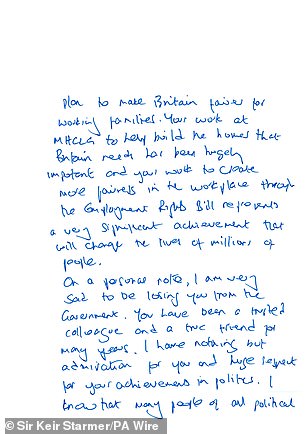 plan to make Britain fairer for
working families. Your work at
MHCLG to help build the homes that
Britain needs has been hugely
important and your work to create
more fairness in the workplace through
the Employment Rights Bill represents
a very significant achievement that
will change the lives of millions of
people.
On a personal note, I am very
sad to be losing you from the
Government. You have been a trusted
colleague and a true friend for
many years. I have nothing but
admiration for you and huge respect
for your achievements in politics. I
know that many people of all political
© Sir Keir Starmer/PA Wire